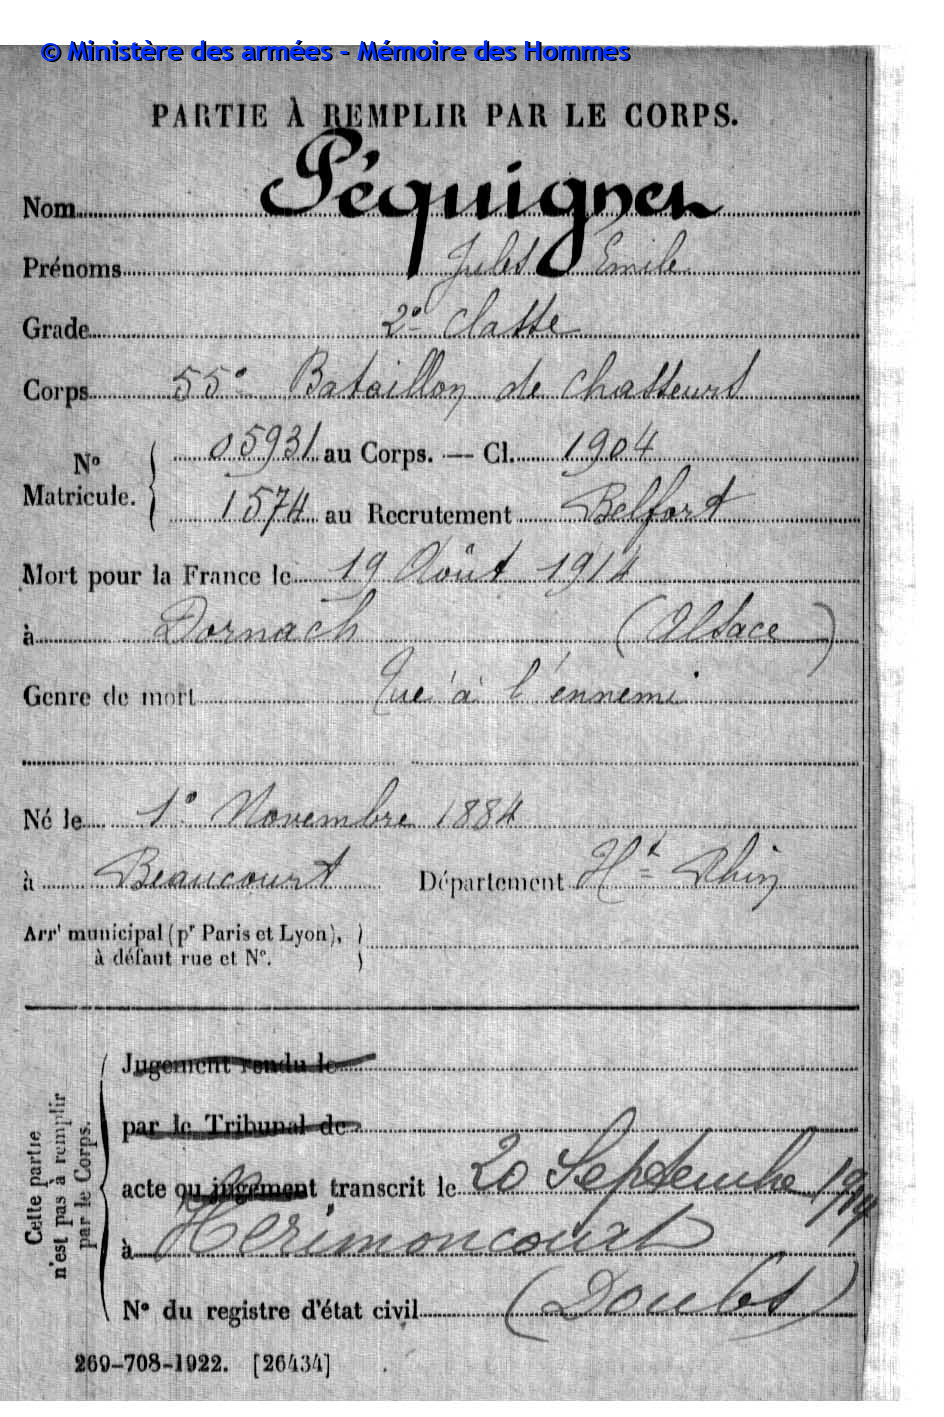 © Ministère des armées - Mémoire des Hommes
PARTIE À REMPLIR PAR LE CORPS.
Nom Péquignet
Prénoms Jules Emile
Grade 2e classe
Corps 55e Bataillon de Chasseurs
No Matricule. 05931 au Corps. — Cl. 1904
1574 au Recrutement Belfort
Mort pour la France le 19 Août 1914
à Dornach (Alsace)
Genre de mort Tué à l'ennemi
Né le 1e Novembre 1884
à Beaucourt Département Ht Rhin
Arrt municipal (pr Paris et Lyon),
à défaut rue et No.
Cette partie
n'est pas à remplir
par le Corps.
Jugement rendu le
par le Tribunal de
acte ou jugement transcrit le 20 Septembre 1914
à Hérimoncourt
No du registre d'état civil (Doubs)
269-708-1922. [26434]